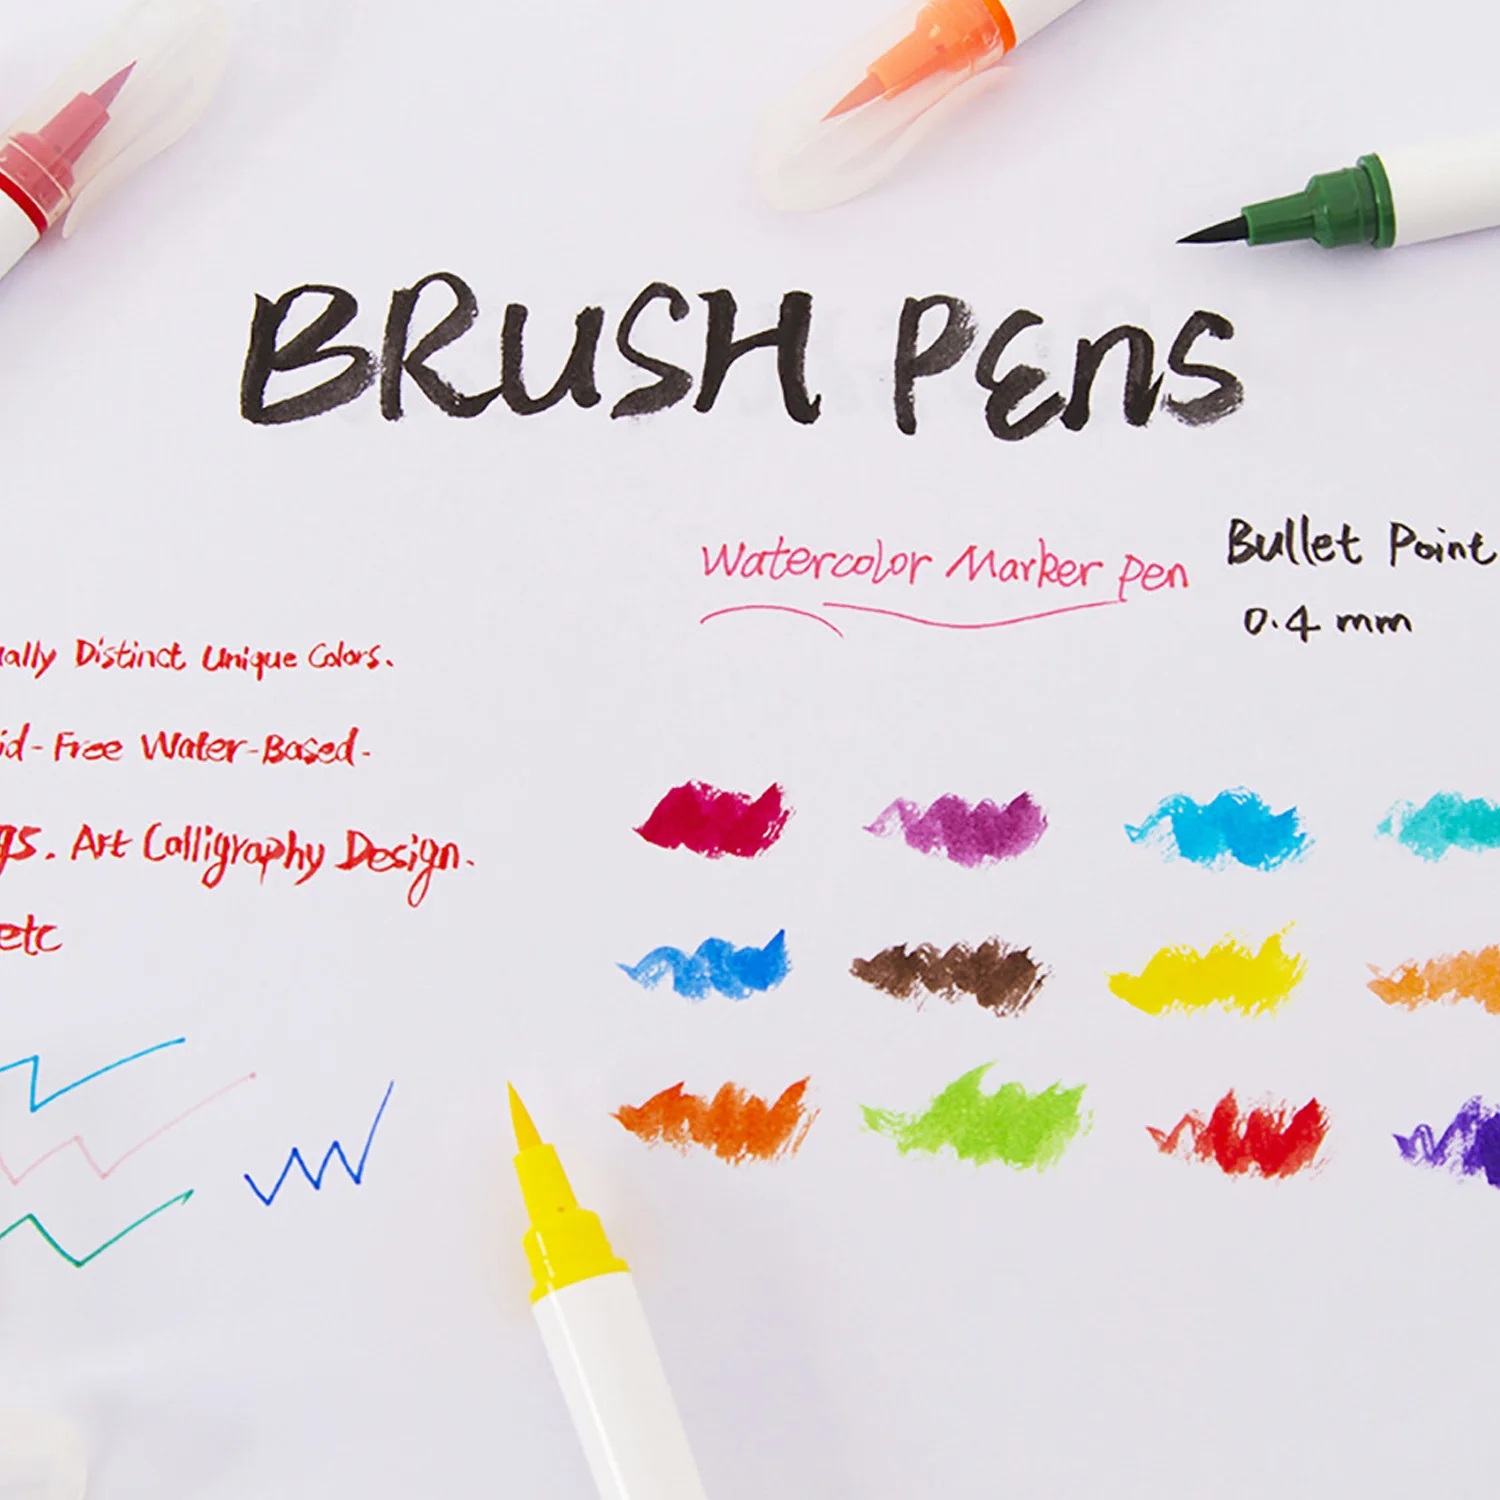 BRUSH Pens
Watercolor Marker pen
Bullet Point
0.4 mm
Distinct Unique Colors.
Free Water-Based.
Art Calligraphy Design.
etc